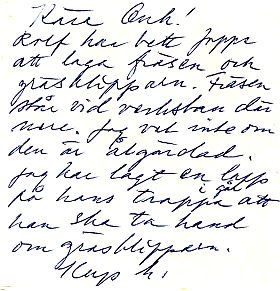 Käre Onk!
Rolf har bett Jappe
att laga fräsen och
gräsklipparn. Fräsen
står vid verkstan där
nere. Jag vet inte om
den är åtgärdad.
Jag har lagt en lapp
på hans trappa i går att
han ska ta hand
om gräsklipparn.